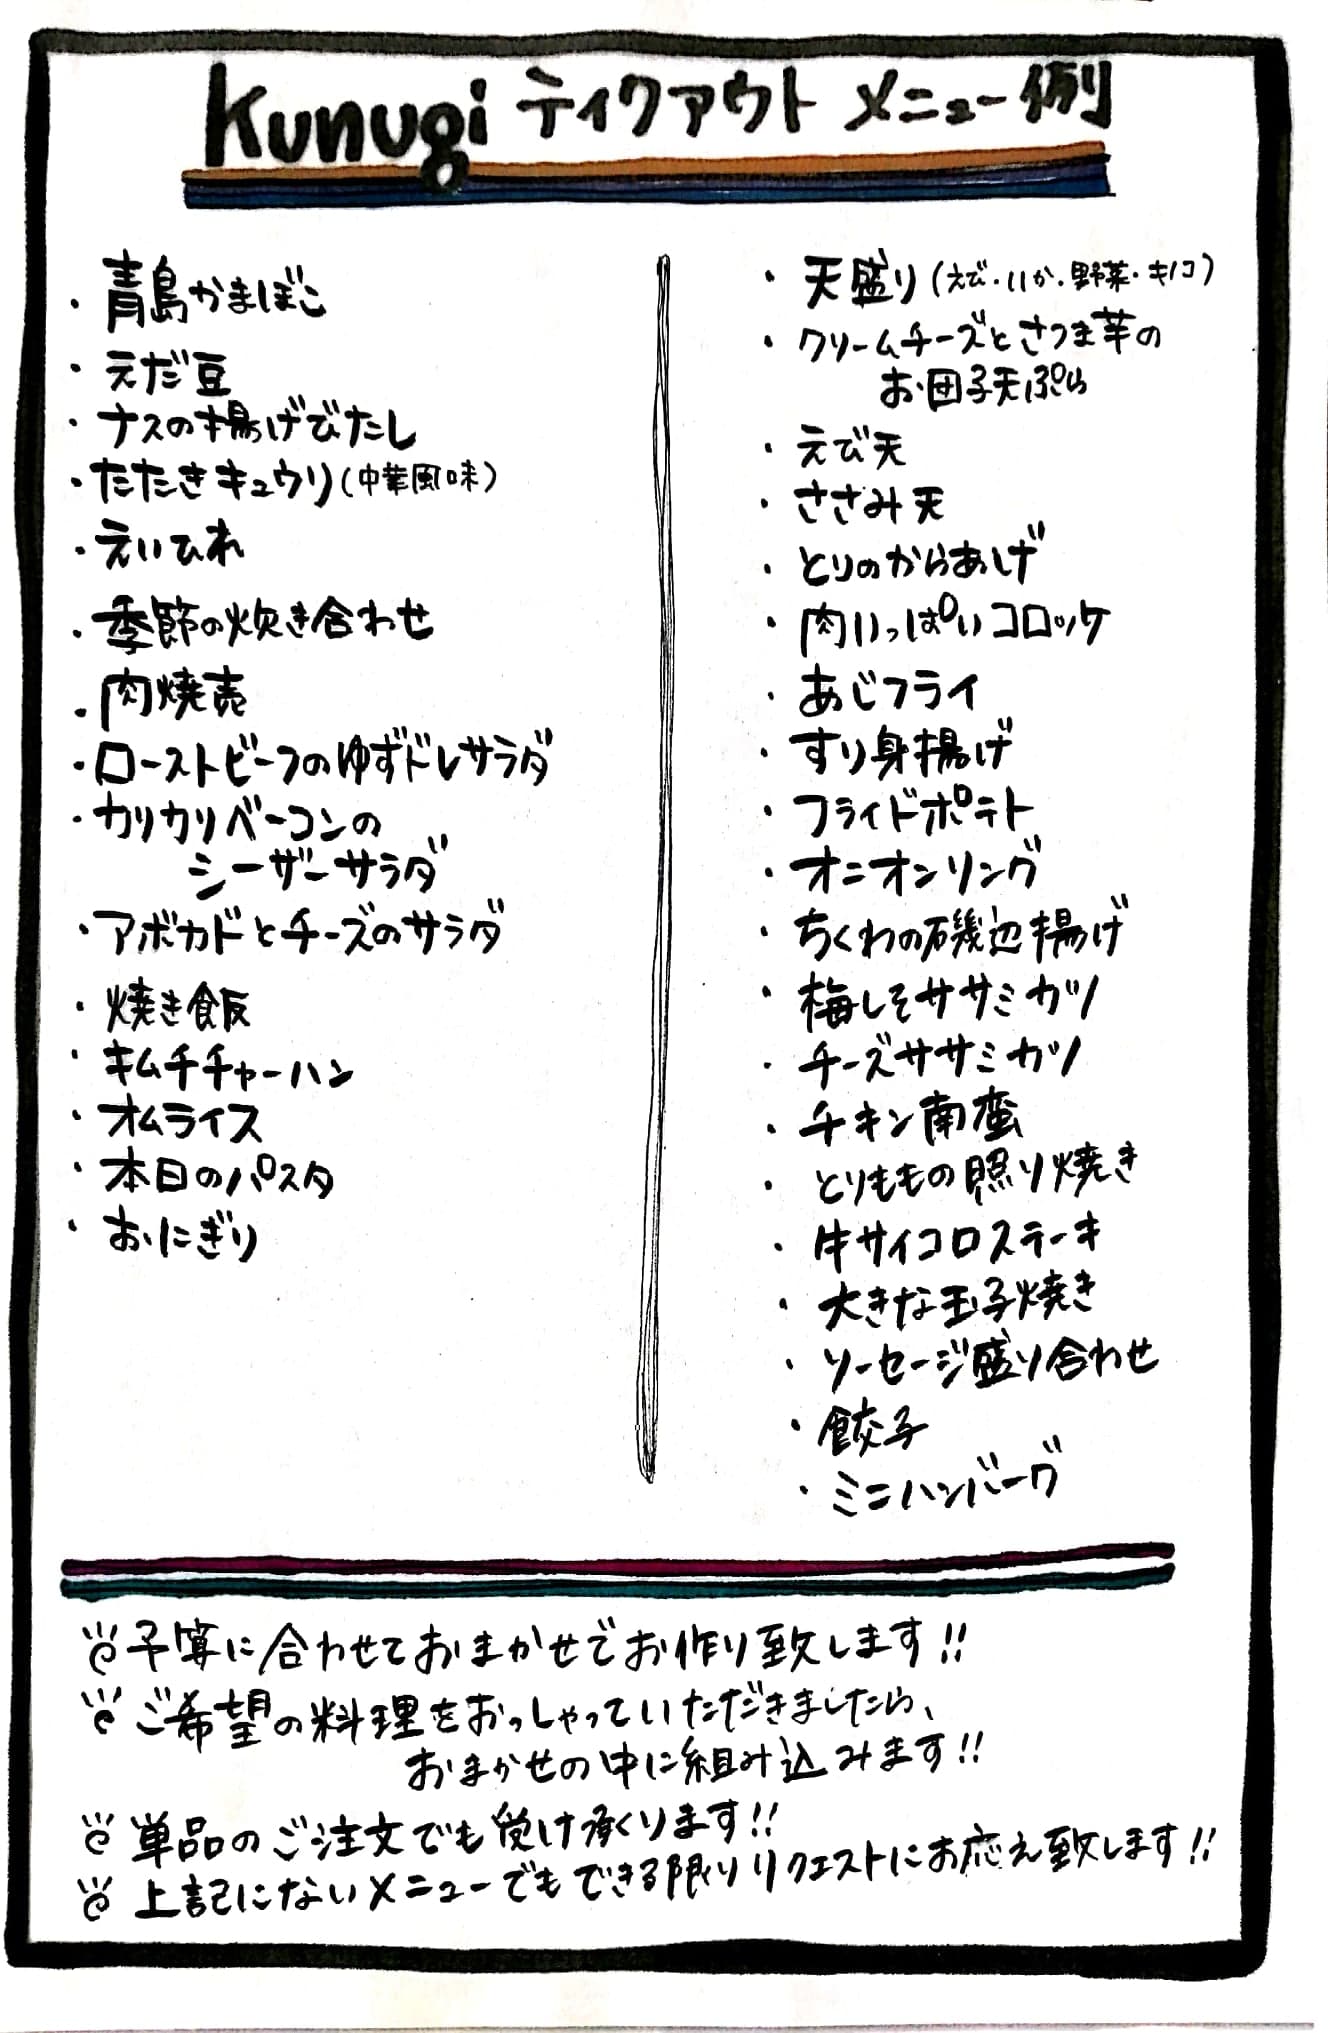 Kunugi ティクアウト メニュー例
・青島かまぼこ
・えだ豆
・ナスの揚げびたし
・たたきキュウリ(中華風味)
・えいひれ
・季節の炊き合わせ
・肉焼売
・ローストビーフのゆずドレサラダ
・カリカリベーコンの
シーザーサラダ
・アボカドとチーズのサラダ
・焼き飯
・キムチチャーハン
・オムライス
・本日のパスタ
・おにぎり
・天盛り(えび・いか・野菜・キノコ)
・クリームチーズとさつま芋の
お団子天ぷら
・えび天
・ささみ天
・とりのからあげ
・肉いっぱいコロッケ
・あじフライ
・すり身揚げ
・フライドポテト
・オニオンリング
・ちくわの磯辺揚げ
・梅しそササミカツ
・チーズササミカツ
・チキン南蛮
・とりももの照り焼き
・牛サイコロステーキ
・大きな玉子焼き
・ソーセージ盛り合わせ
・餃子
・ミニハンバーグ
予算に合わせておまかせでお作り致します!!
ご希望の料理をおっしゃっていただきましたら、
おまかせの中に組み込みます!!
単品のご注文でも受け承ります!!
上記にないメニューでもできる限りリクエストにお応え致します!!